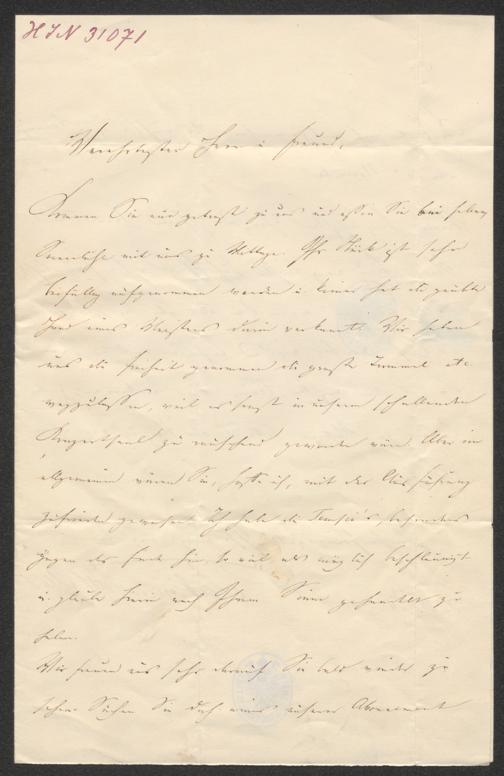 HIN 31071
Verehrtester Herr u Freund,
Kommen Sie nur getrost zu uns und essen Sie bei
mit uns zu Mittag. Ihr Stück ist sehr
beifällig aufgenommen worden u. keiner hat die geübte
Hand eines Meisters darin verkannt. Wir haben
uns die Freiheit genommen die große Trommel etc.
wegzulassen, weil es sonst in unserm schallenden
Konzertsaal zu rauschend geworden wäre. Aber im
allgemeinen wären Sie, hoffe ich, mit der Ausführung
zufrieden gewesen. Ich habe die Tempi's besonders
gegen das Ende hin, so viel als möglich beschleunigt
u. glaube hierin nach Ihrem Sinne gehandelt zu
haben.
Wir freuen uns sehr darauf Sie bald wieder zu
sehen. Suchen Sie doch eines unserer Abonnement